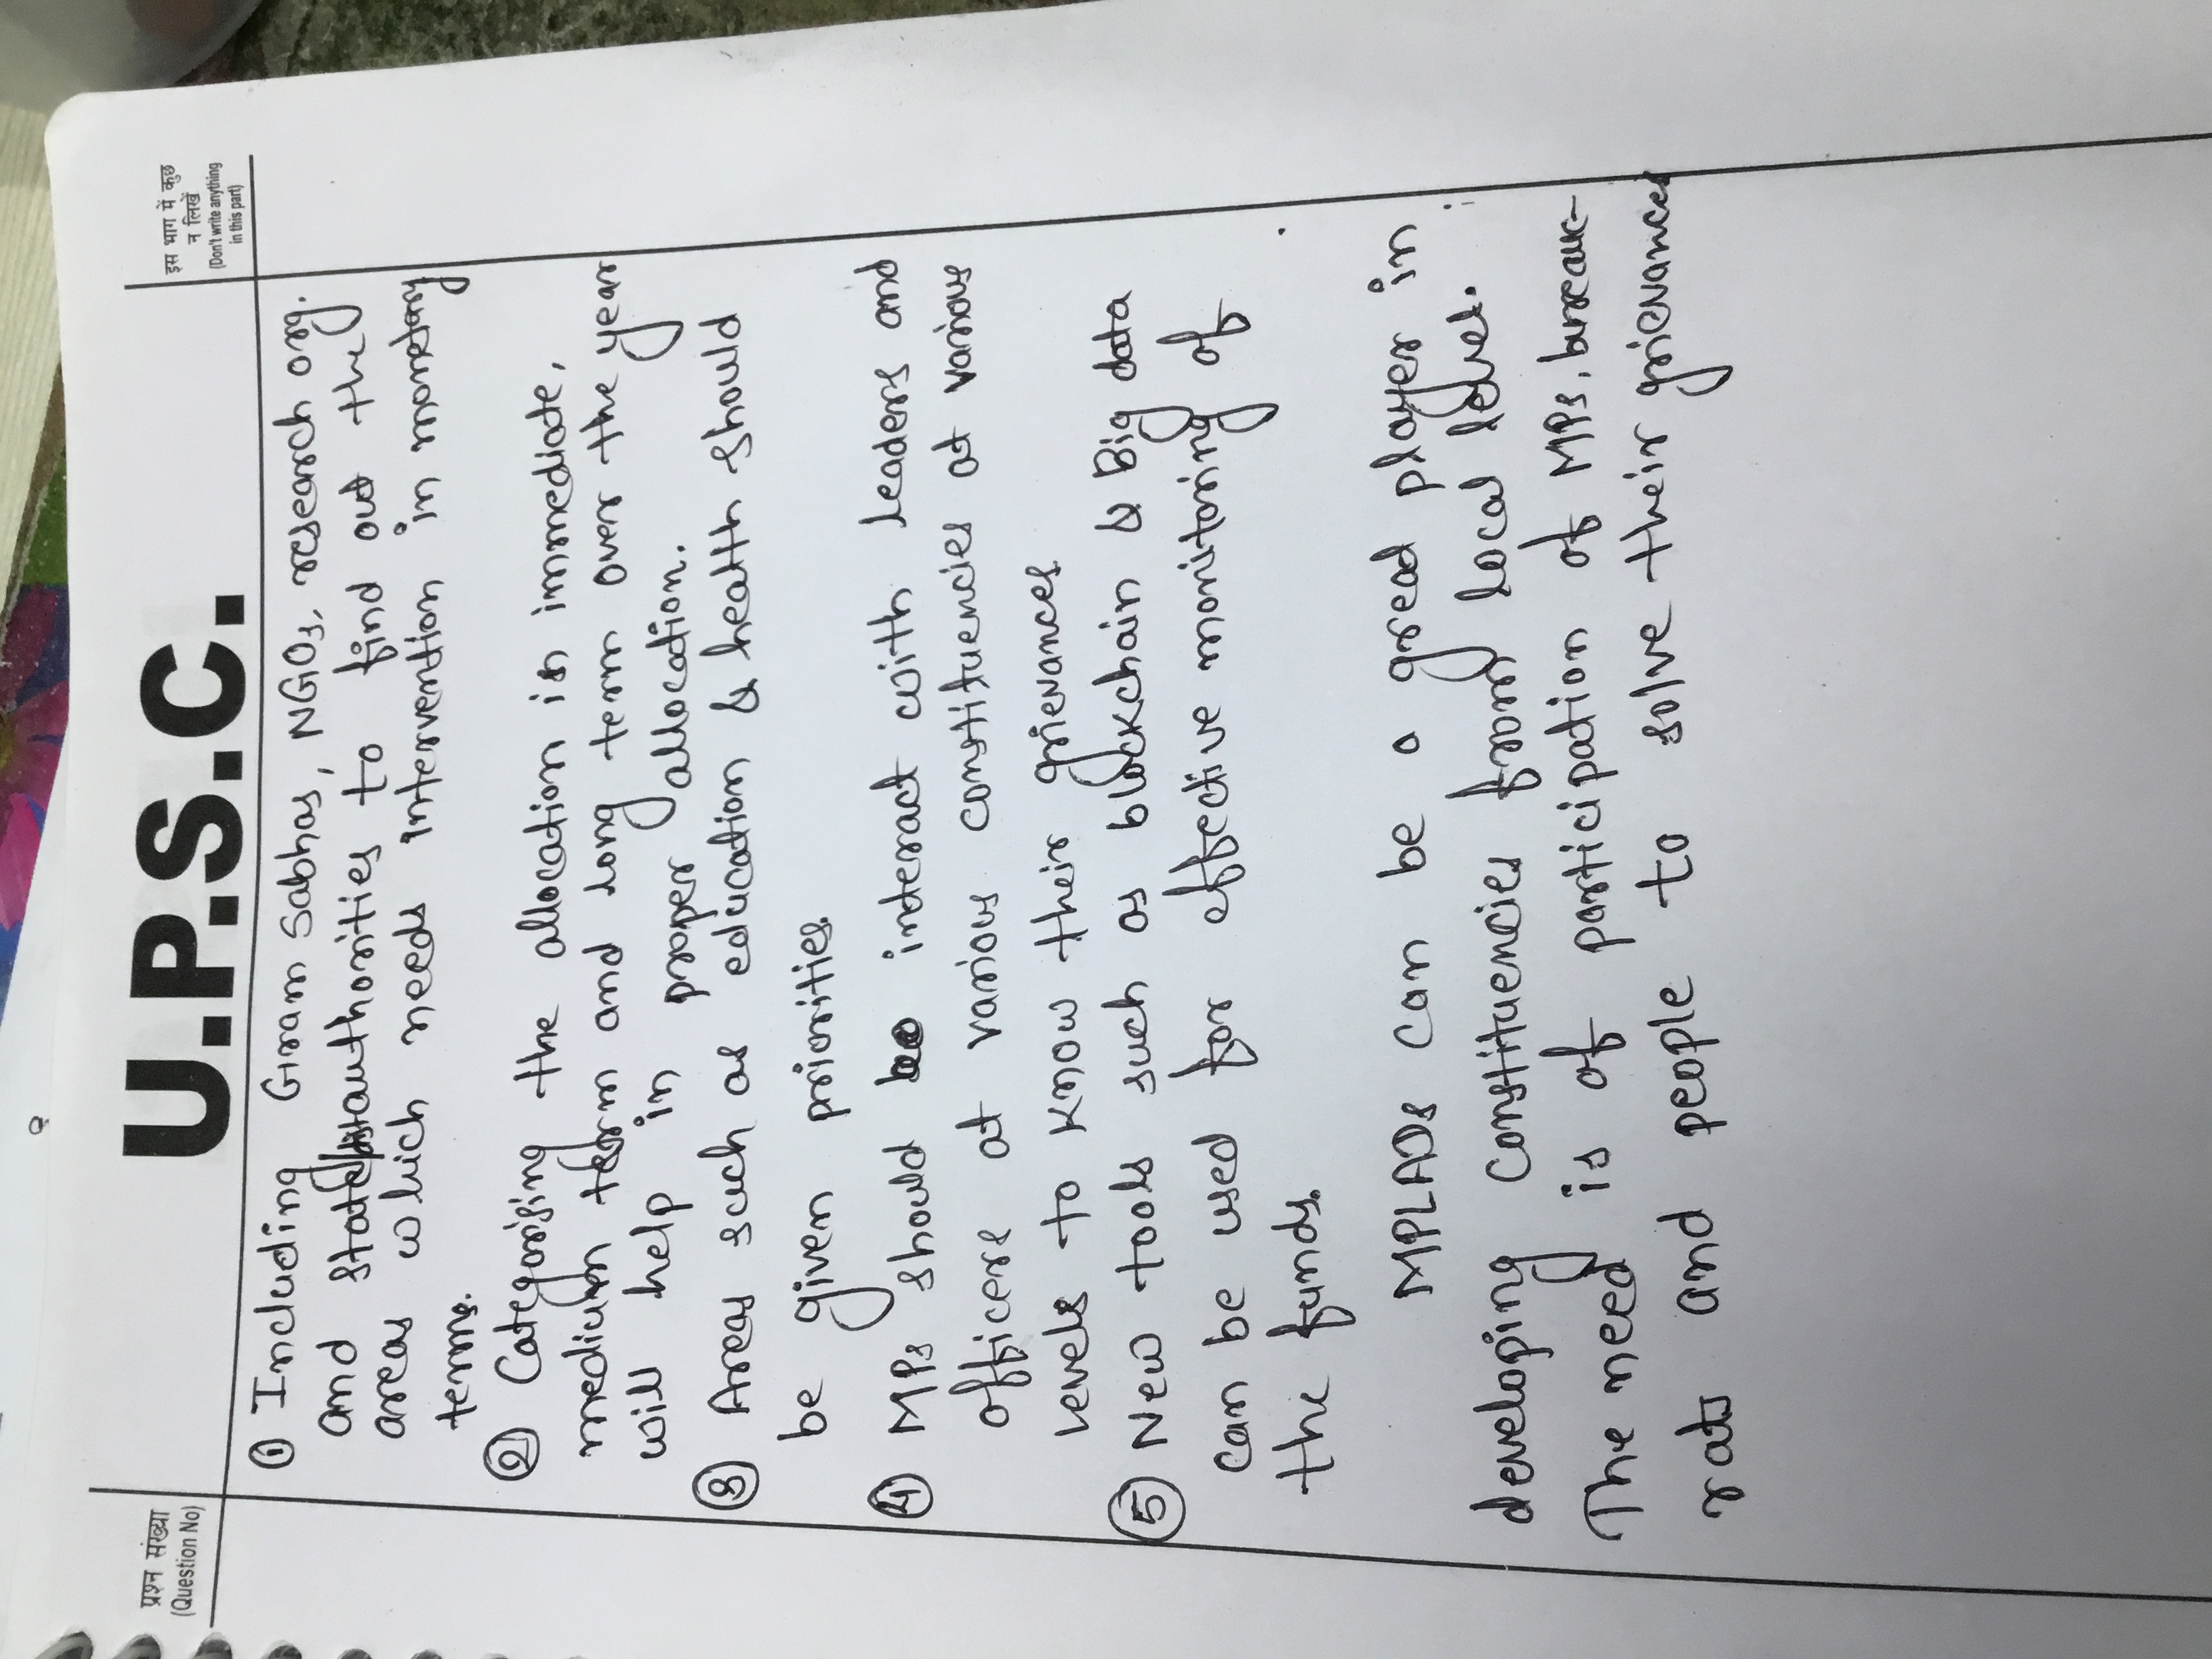 U.P.S.C.
प्रश्न संख्या
(Question No)
इस भाग में कुछ
न लिखें
(Don't write anything
in this part)
① Including Gram Sabhas, NGOs, research org.
and state authorities to find out the
areas which needs intervention in monetary
terms.
② Categorising the allocation in immediate,
medium term and long term over the year
will help in proper allocation.
③ Areas such as education & health should
be given priorities.
④ MPs should interact with leaders and
officers at various constituencies at various
levels to know their grievances.
⑤ New tools such as blockchain & Big data
can be used for effective monitoring of
the funds.
MPLADs can be a great player in
developing constituencies from local level.
The need is of participation of MPs, bureauc-
rats and people to solve their grievances